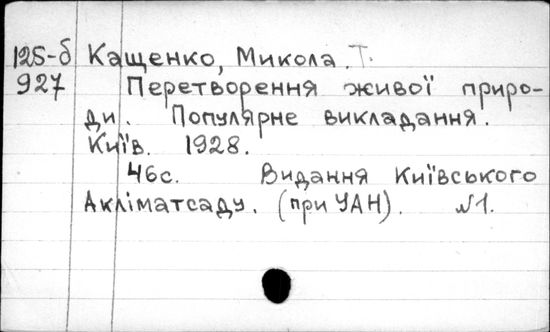 125-б Кащенко, Микола Т.
927 Перетворення живої приро-
ди. Популярне викладання.
Київ. 1928.
46с. Видання Київського
Акліматсаду. (при УАН). №1.